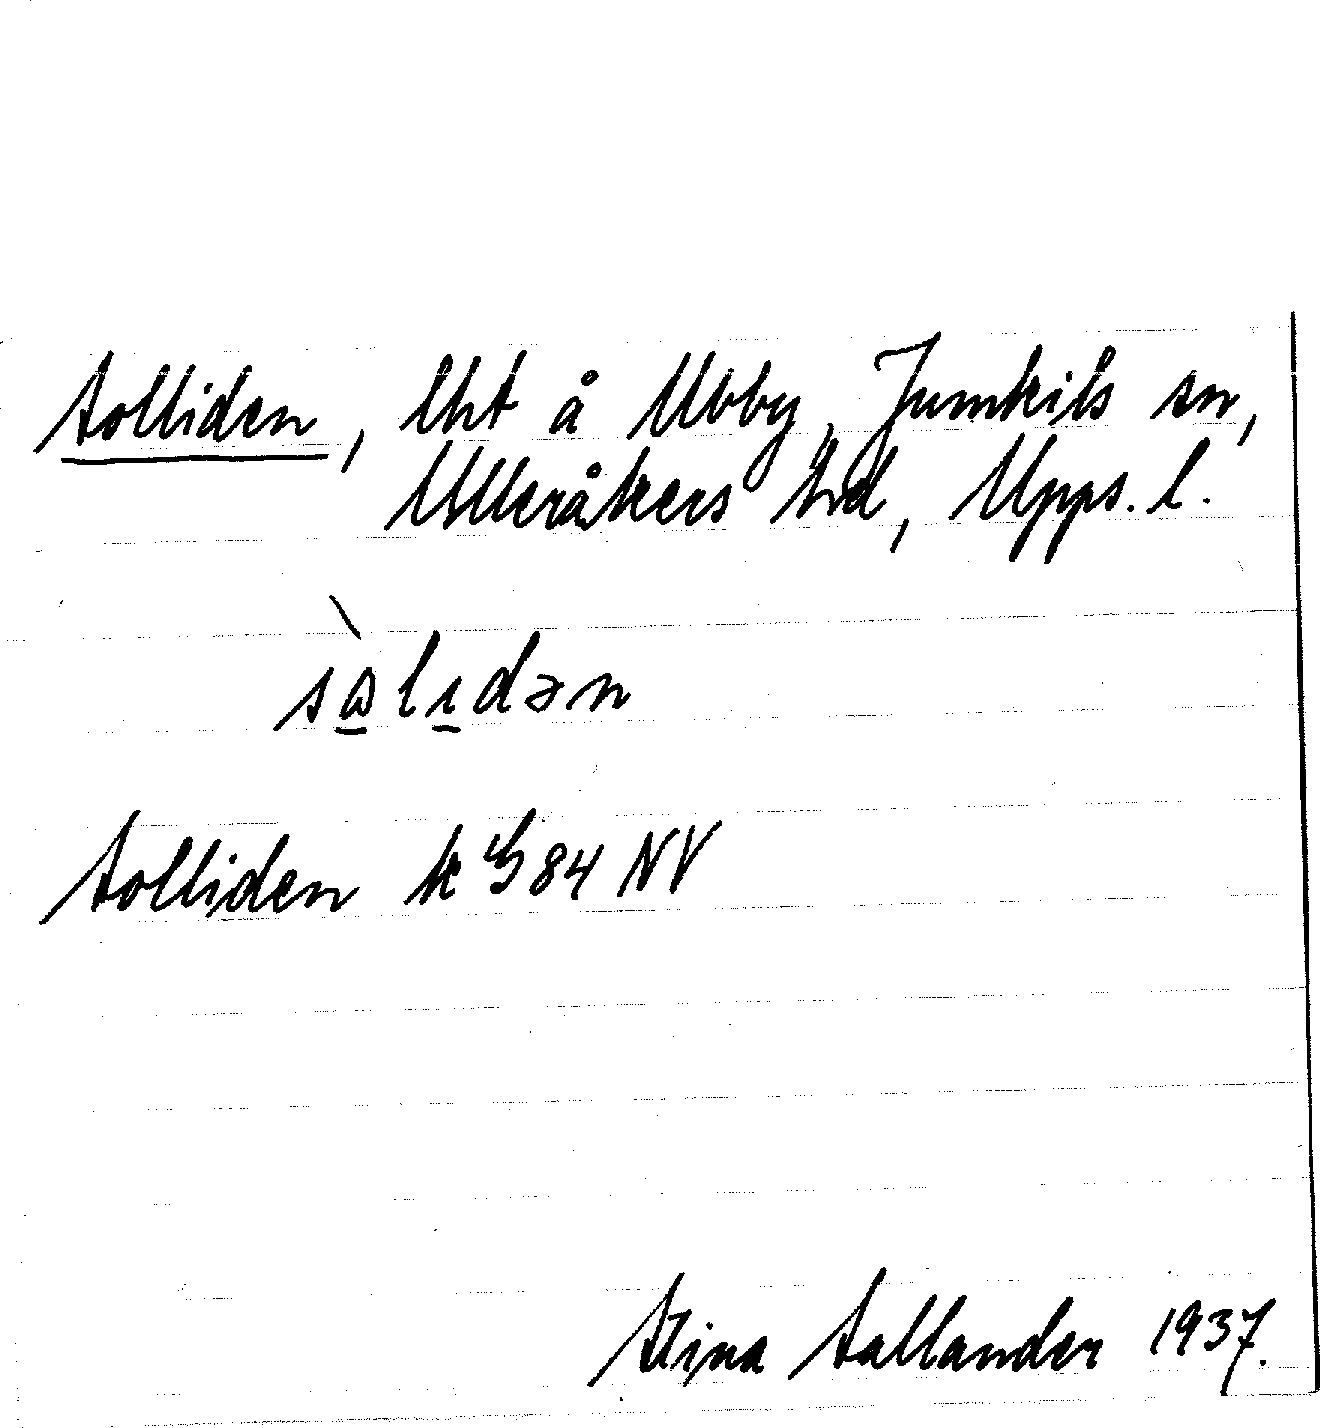 Solliden, lht å Ubby, Jumkils sn,
Ulleråkers hd, Upps. l.
sòlıdən
Solliden k G 84 NV
Stina Sallander 1937.